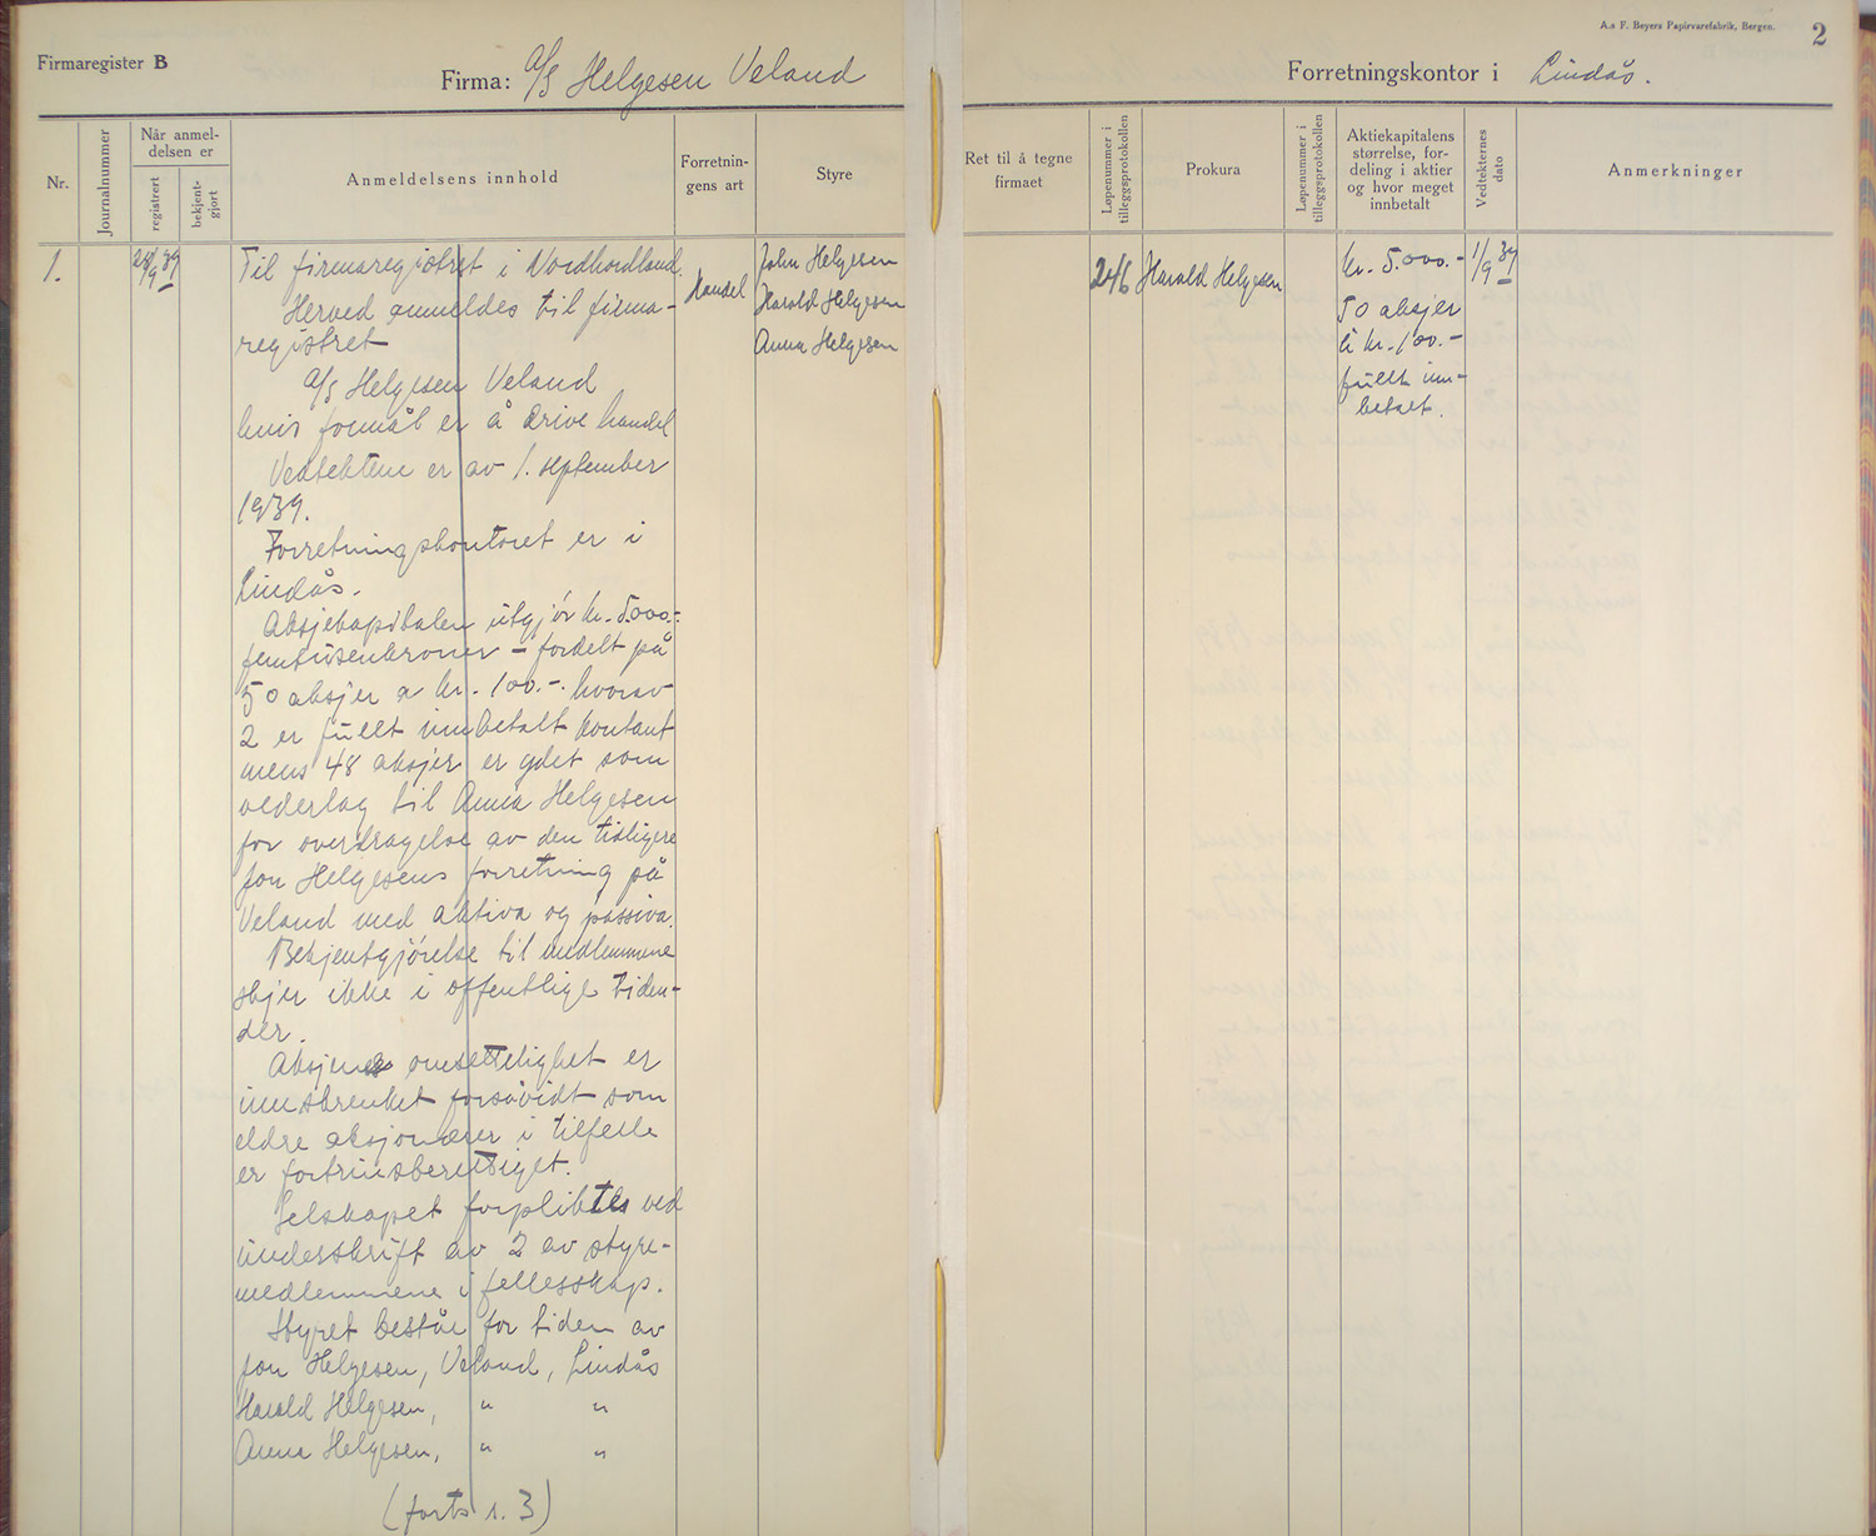 A.s F. Beyers Papirvarefabrik, Bergen.
2
Firmaregister B
Firma: A/S Helgesen Veland
Forretningskontor i Lindås.
Nr.
Journalnummer
Når anmel-
delsen er
registrert
bekjent-
gjort
Anmeldelsens innhold
Forretnin-
gens art
Styre
Ret til å tegne
firmaet
Løpenummer i
tilleggsprotokollen
Prokura
Løpenummer i
tilleggsprotokollen
Aktiekapitalens
størrelse, for-
deling i aktier
og hvor meget
innbetalt
Vedtekternes
dato
Anmerkninger
1.
28/9 39
Til firmaregistret i Nordhordland.
Herved anmeldes til firma-
registret
A/S Helgesen Veland
hvis formål er å drive handel
Vedtektene er av 1. september
1939.
Forretningskontoret er i
Lindås.
Aksjekapitalen utgjør kr. 5.000.-
femtusenkroner - fordelt på
50 aksjer a kr. 100.-. hvorav
2 er fullt innbetalt kontant
mens 48 aksjer er ydet som
vederlag til Anna Helgesen
for overdragelse av den tidligere
Jon Helgesens forretning på
Veland med aktiva og passiva.
Bekjentgjørelse til medlemmene
skjer ikke i offentlige tiden-
der.
Aksjenes omsettelighet er
innskrenket forsåvidt som
eldre aksjonærer i tilfelle
er fortrinsberettiget.
Selskapet forpliktes ved
underskrift av 2 av styre-
medlemmene i fellesskap.
Styret består for tiden av
Jon Helgesen, Veland, Lindås
Harald Helgesen, " "
Anna Helgesen, " "
(forts s. 3)
Handel
John Helgesen
Harald Helgesen
Anna Helgesen
246
Harald Helgesen
kr. 5.000.-
50 aksjer
à kr. 100.-
fullt inn-
betalt.
1/9 39